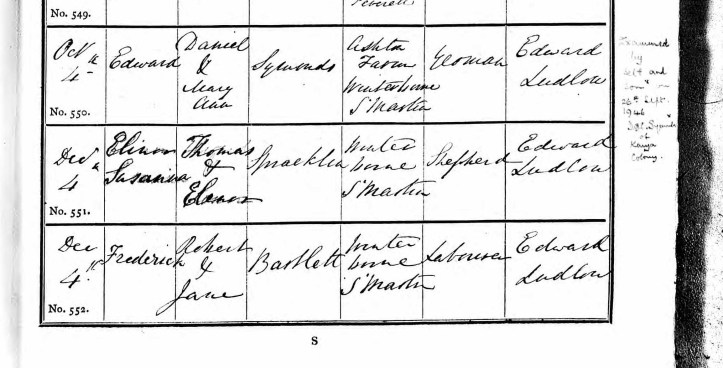 No. 549.
Octr
4th
No. 550.
Edward
Daniel
&
Mary
Ann
Symonds
Ashton
Farm
Winterborne
St Martin
Yeoman
Edward
Ludlow
Decr
4
No. 551.
Elinor
Susanna
Thomas
&
Elinor
Spracklin
Winter
borne
St Martin
Shepherd
Edward
Ludlow
Dec
4th
No. 552.
Frederick
Robert
&
Jane
Bartlett
Winter
borne
St Martin
Labourer
Edward
Ludlow
Examined
by
self and
son
26th Sept.
1946
Symonds
of
Kenya
Colony.
S